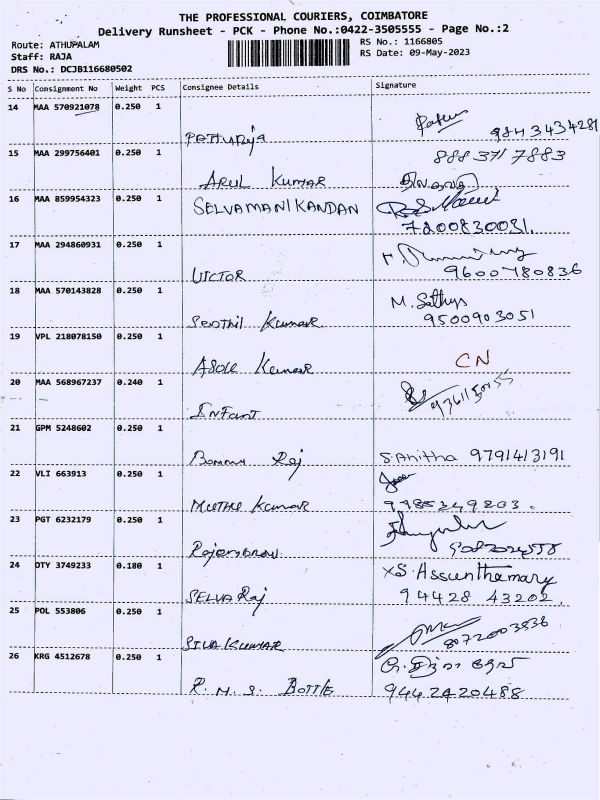 THE PROFESSIONAL COURIERS, COIMBATORE
Delivery Runsheet - PCK - Phone No.:0422-3505555 - Page No.:2
Route: ATHUPALAM
RS No.: 1166805
Staff: RAJA
RS Date: 09-May-2023
DRS No.: DCJB116680502
S No Consignment No Weight PCS Consignee Details Signature
14 MAA 570921078 0.250 1
98434 34281
15 MAA 299756401 0.250 1 888 371 7883
ARUL KUMAR
16 MAA 859954323 0.250 1 SELVAMANIKANDAN
7200830031.
17 MAA 294860931 0.250 1
VICTOR 9600780836
18 MAA 570143828 0.250 1 M. Sathya
Senthil Kumar 9500903051
19 VPL 218078150 0.250 1
Asok Kumar CN
20 MAA 568967237 0.240 1
INFANT
21 GPM 5248602 0.250 1
Bommu Raj SAnitha 9791413191
22 VLI 663913 0.250 1
MUTHU KUMAR 9985249203.
23 PGT 6232179 0.250 1
24 OTY 3749233 0.180 1 XS. Assunthamary
SELVA Raj 94428 43202,
25 POL 553806 0.250 1
SIVA KUMAR 8072003536
26 KRG 4512678 0.250 1
R. M. S. BOTTLE 9442420488